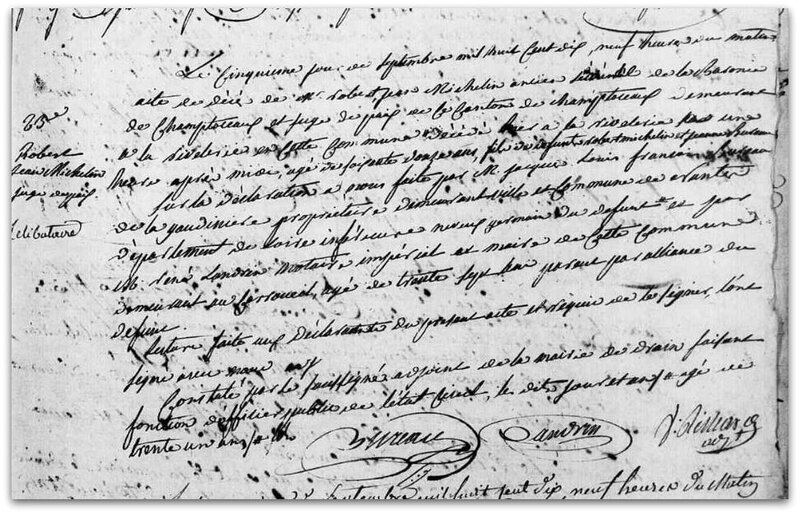 25e
Robert
jean Michelin
juge de paix
Celibataire
Le Cinquieme jour de septembre mil huit Cent dix, neuf heures du matin
acte de décé de Mr. robert jean Michelin ancien sénéchal de la Baronie
de Champtoceaux et juge de paix de le Canton de champtoceaux demeurant
a la riveterie en Cette Commune décédé hier a la riveterie une
heure après midi, agé de soixante onze ans, fils de defunts robert michelin et jeanne bureau
sur la déclaration a nous faite par M. jacque Louis françois bureau
de la gaudiniere proprietere demeurant ville et Commune de nantes
département de Loire inférieure neveu germain du defunt et par
M. rené Landrin notaire impérial et maire de Cette Commune
demeurant au agé de trente six ans parent par alliance du
defunt.
Lecture faite aux déclarants du present acte et requis de le signer, l'ont
signé avec nous
Constaté par le soussigné adjoint de la mairie de Drain faisant
fonction d'officier public de l'etat Civil, les dits jour et an # agé de
trente un ans #
Bureau Landrin
septembre mil huit Cent dix, neuf heures du Matin